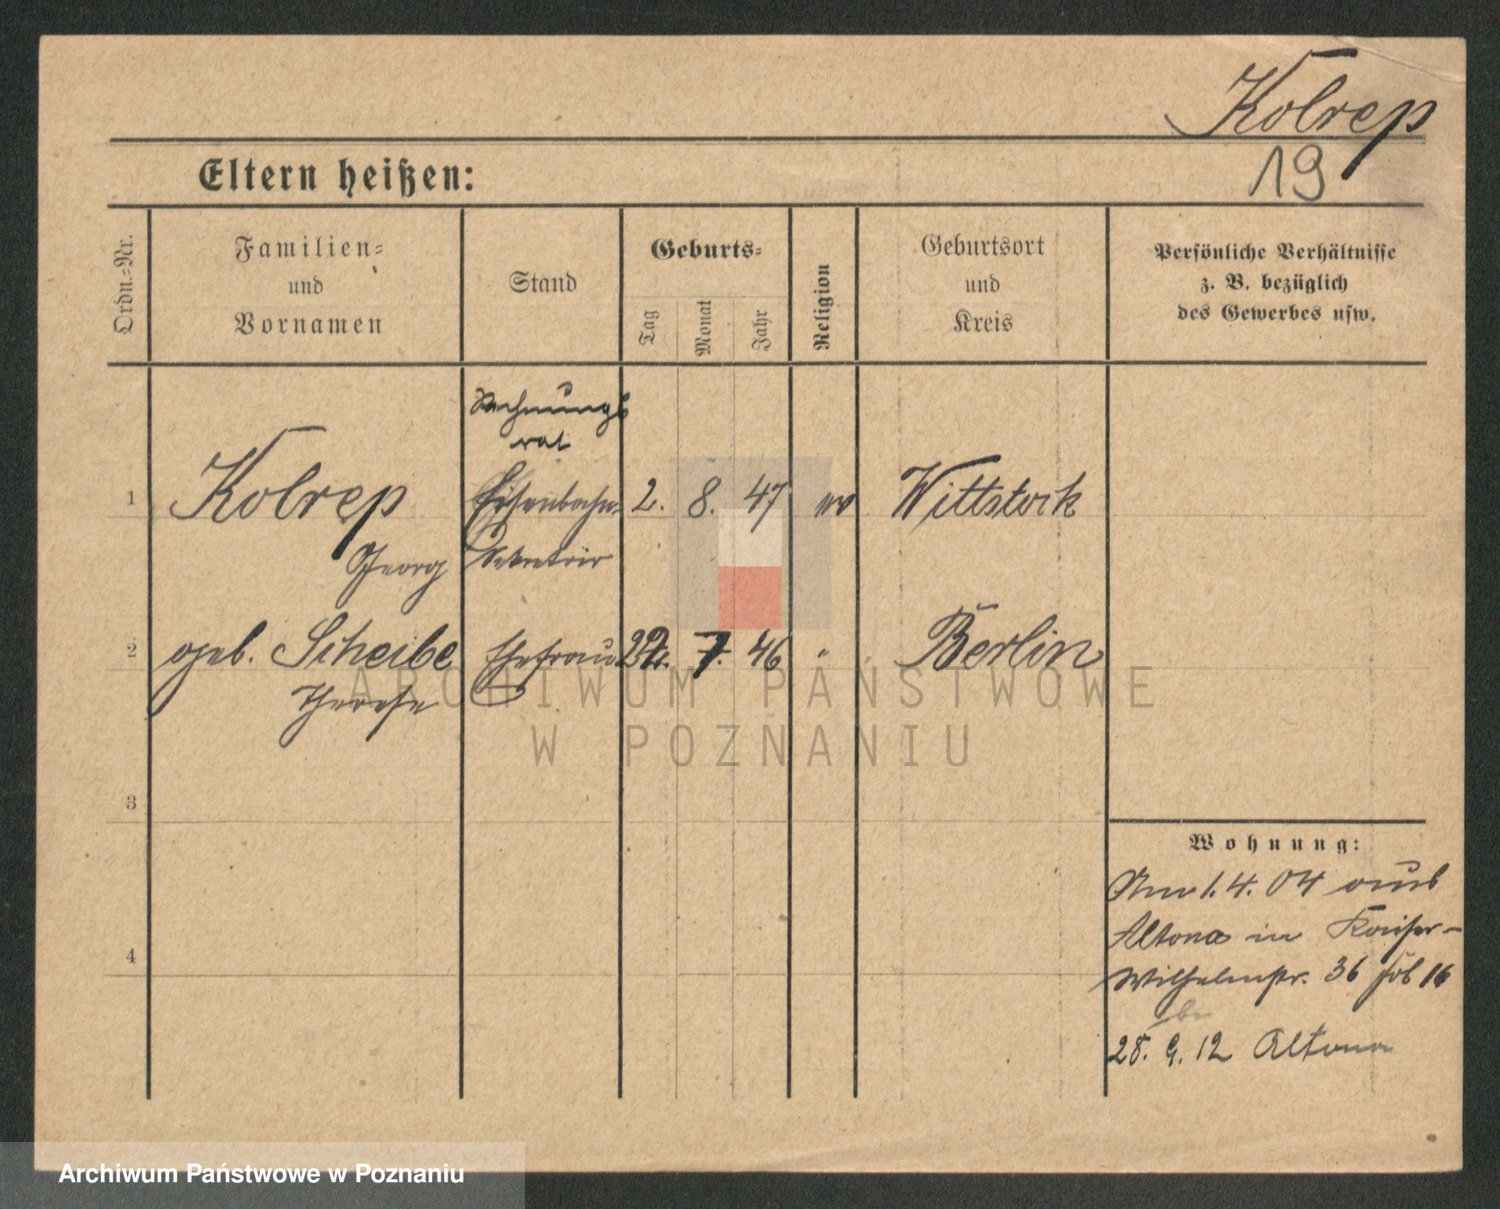 Kolrep
19
Eltern heißen:
Ordn.-Nr.
Familien-
und
Vornamen
Stand
Geburts-
Tag
Monat
Jahr
Religion
Geburtsort
und
Kreis
Persönliche Verhältnisse
z. B. bezüglich
des Gewerbes usw.
Rechnungs
rat
1 Kolrep Eisenbahn- 2. 8. 47 ev Wittstock
Georg Sekretär
2 geb. Scheibe Ehefrau 7. 46 " Berlin
Therese
3
4
Wohnung:
1. 4. 04 aus
Altona in Kaiser-
Wilhelmstr. 36 16
28. 9. 12 Altona
ARCHIWUM PAŃSTWOWE
W POZNANIU
Archiwum Państwowe w Poznaniu